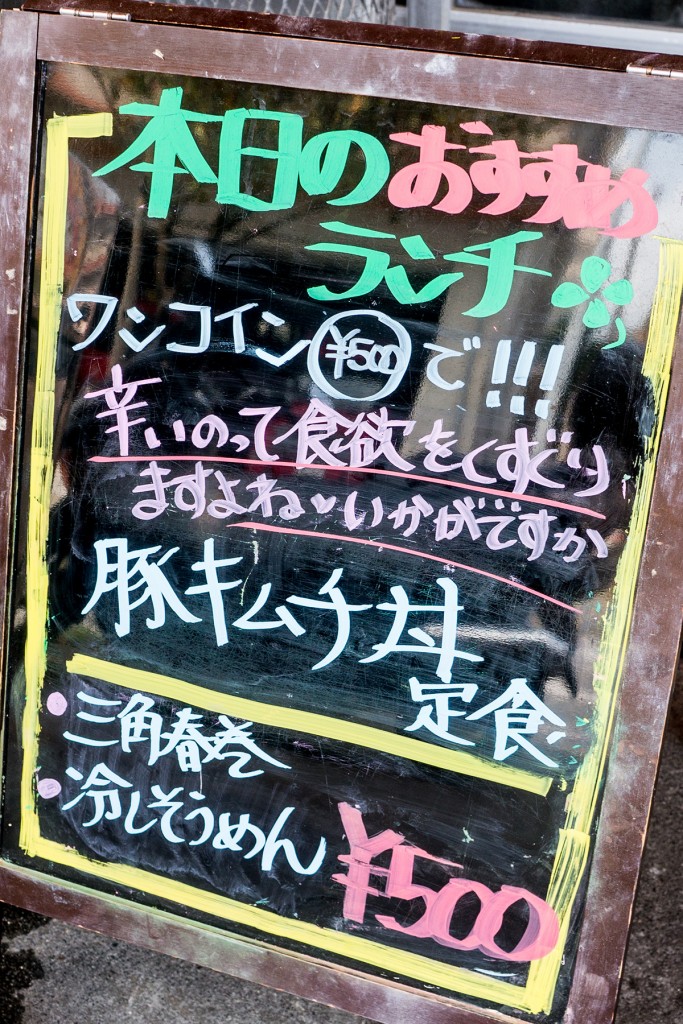 本日のおすすめ
ランチ
ワンコイン¥500で!!!
辛いのって食欲をくすぐり
ますよね♥いかがですか
豚キムチ丼
定食
・三角春巻
・冷しそうめん
¥500